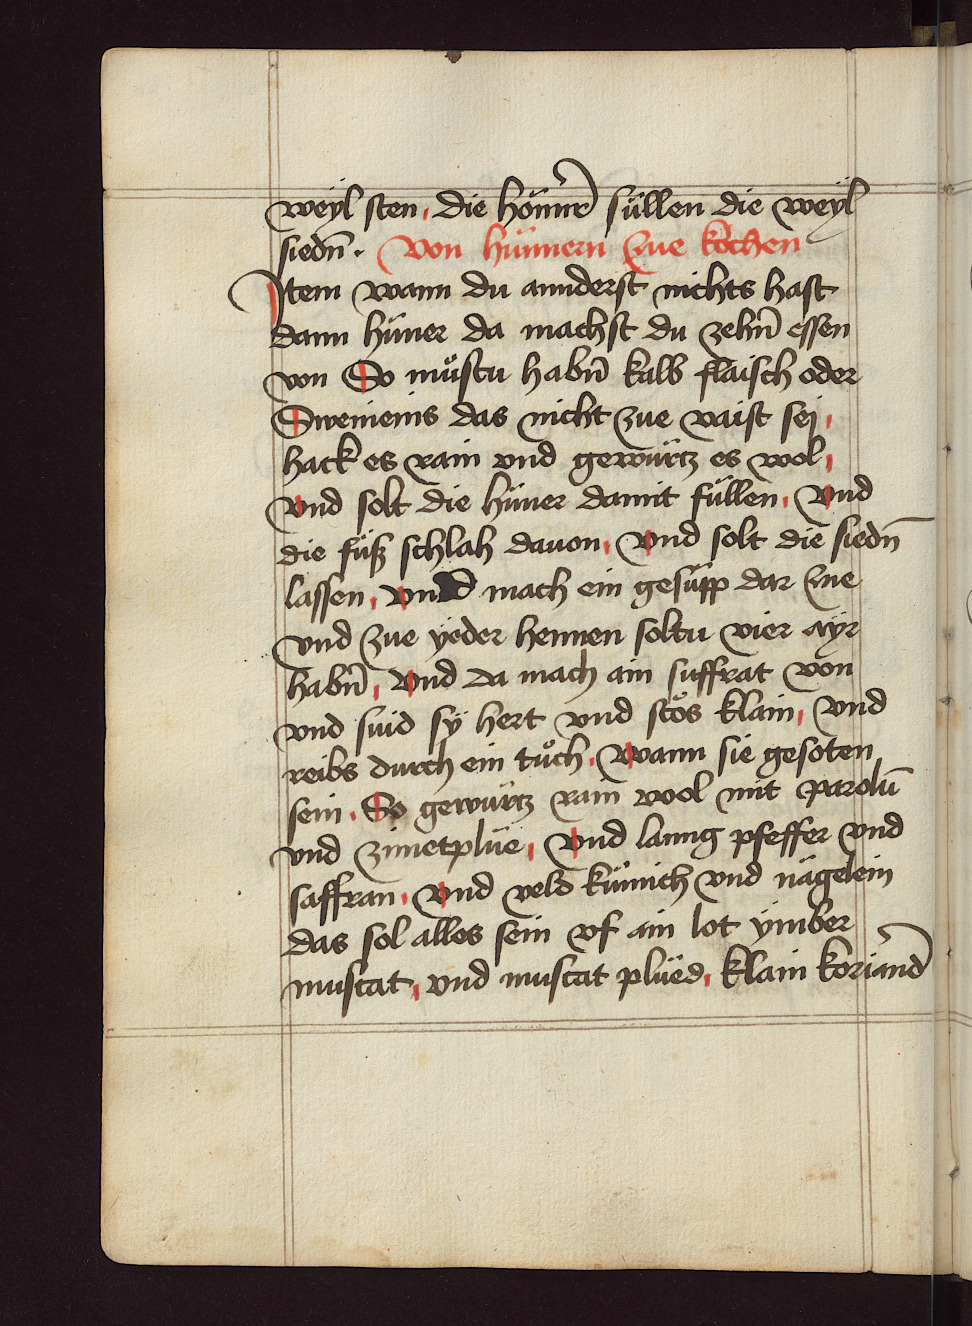 weÿl sten, die hönnr̄ süllen die weÿl
siedn̄. Von hünnern zue kochen
Item wann du annderst nichts hast
dann hüner da machst du zehn̄ essen
von So mu̇̊stu habn̄ kalb flaisch oder
Sweineins das nicht zue vaist sej,
hack es rain vnd gewürtz es wol,
vnd solt die hüner damit füllen, vnd
die füß schlah dauon, vnd solt die siedn̄
lassen, vnd mach ein gesüpp dar zue
vnd zue ÿeder hennen soltu vier aÿr
habn̄, vnd da mach ain suffrat von
vnd suid sÿ hert vnd stös klain, vnd
reibs durch ein tůch, wann sie gesoten
sein, So gewürtz ram wol mit parolū
vnd zimetplüe, vnd lanng pfeffer vnd
saffran, vnd veld kümich vnd nägelein
das sol alles sein vf ain lot ÿmber
muscat, vnd muscat plüed, klain koriand̄